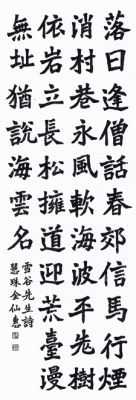 落日逢僧話春郊信馬行煙
消村巷永風軟海波平老樹
依岩立長松擁道迎荒臺漫
無址猶說海雲名
雪谷先生詩
慧珠金仙惠